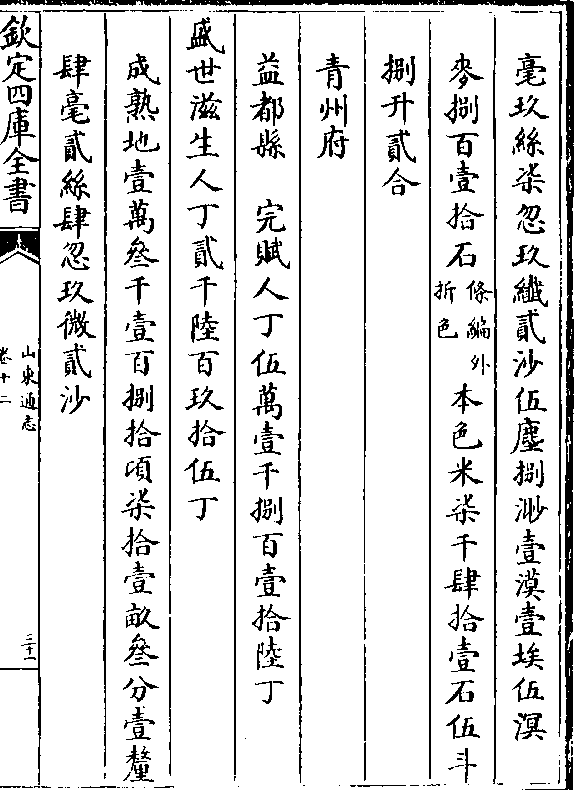 毫玖絲柒忽玖纖貳沙伍塵捌渺壹漠壹埃伍溟
麥捌百壹拾石條編外折色本色米柒千肆拾壹石伍斗
捌升貳合
青州府
益都縣　完賦人丁伍萬壹千捌百壹拾陸丁
盛世滋生人丁貳千陸百玖拾伍丁
成熟地壹萬叄千壹百捌拾頃柒拾壹畝叄分壹釐
肆毫貳絲肆忽玖微貳沙
欽定四庫全書
山東通志
卷十二
三十一